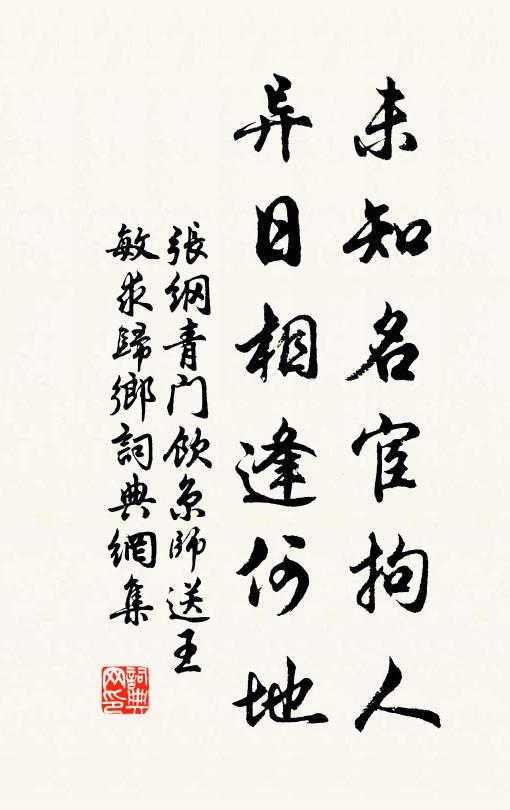 未知名宦拘人
异日相逢何地
張纲青门飲京師送王
敏求歸鄉詞典網集
詞典网印